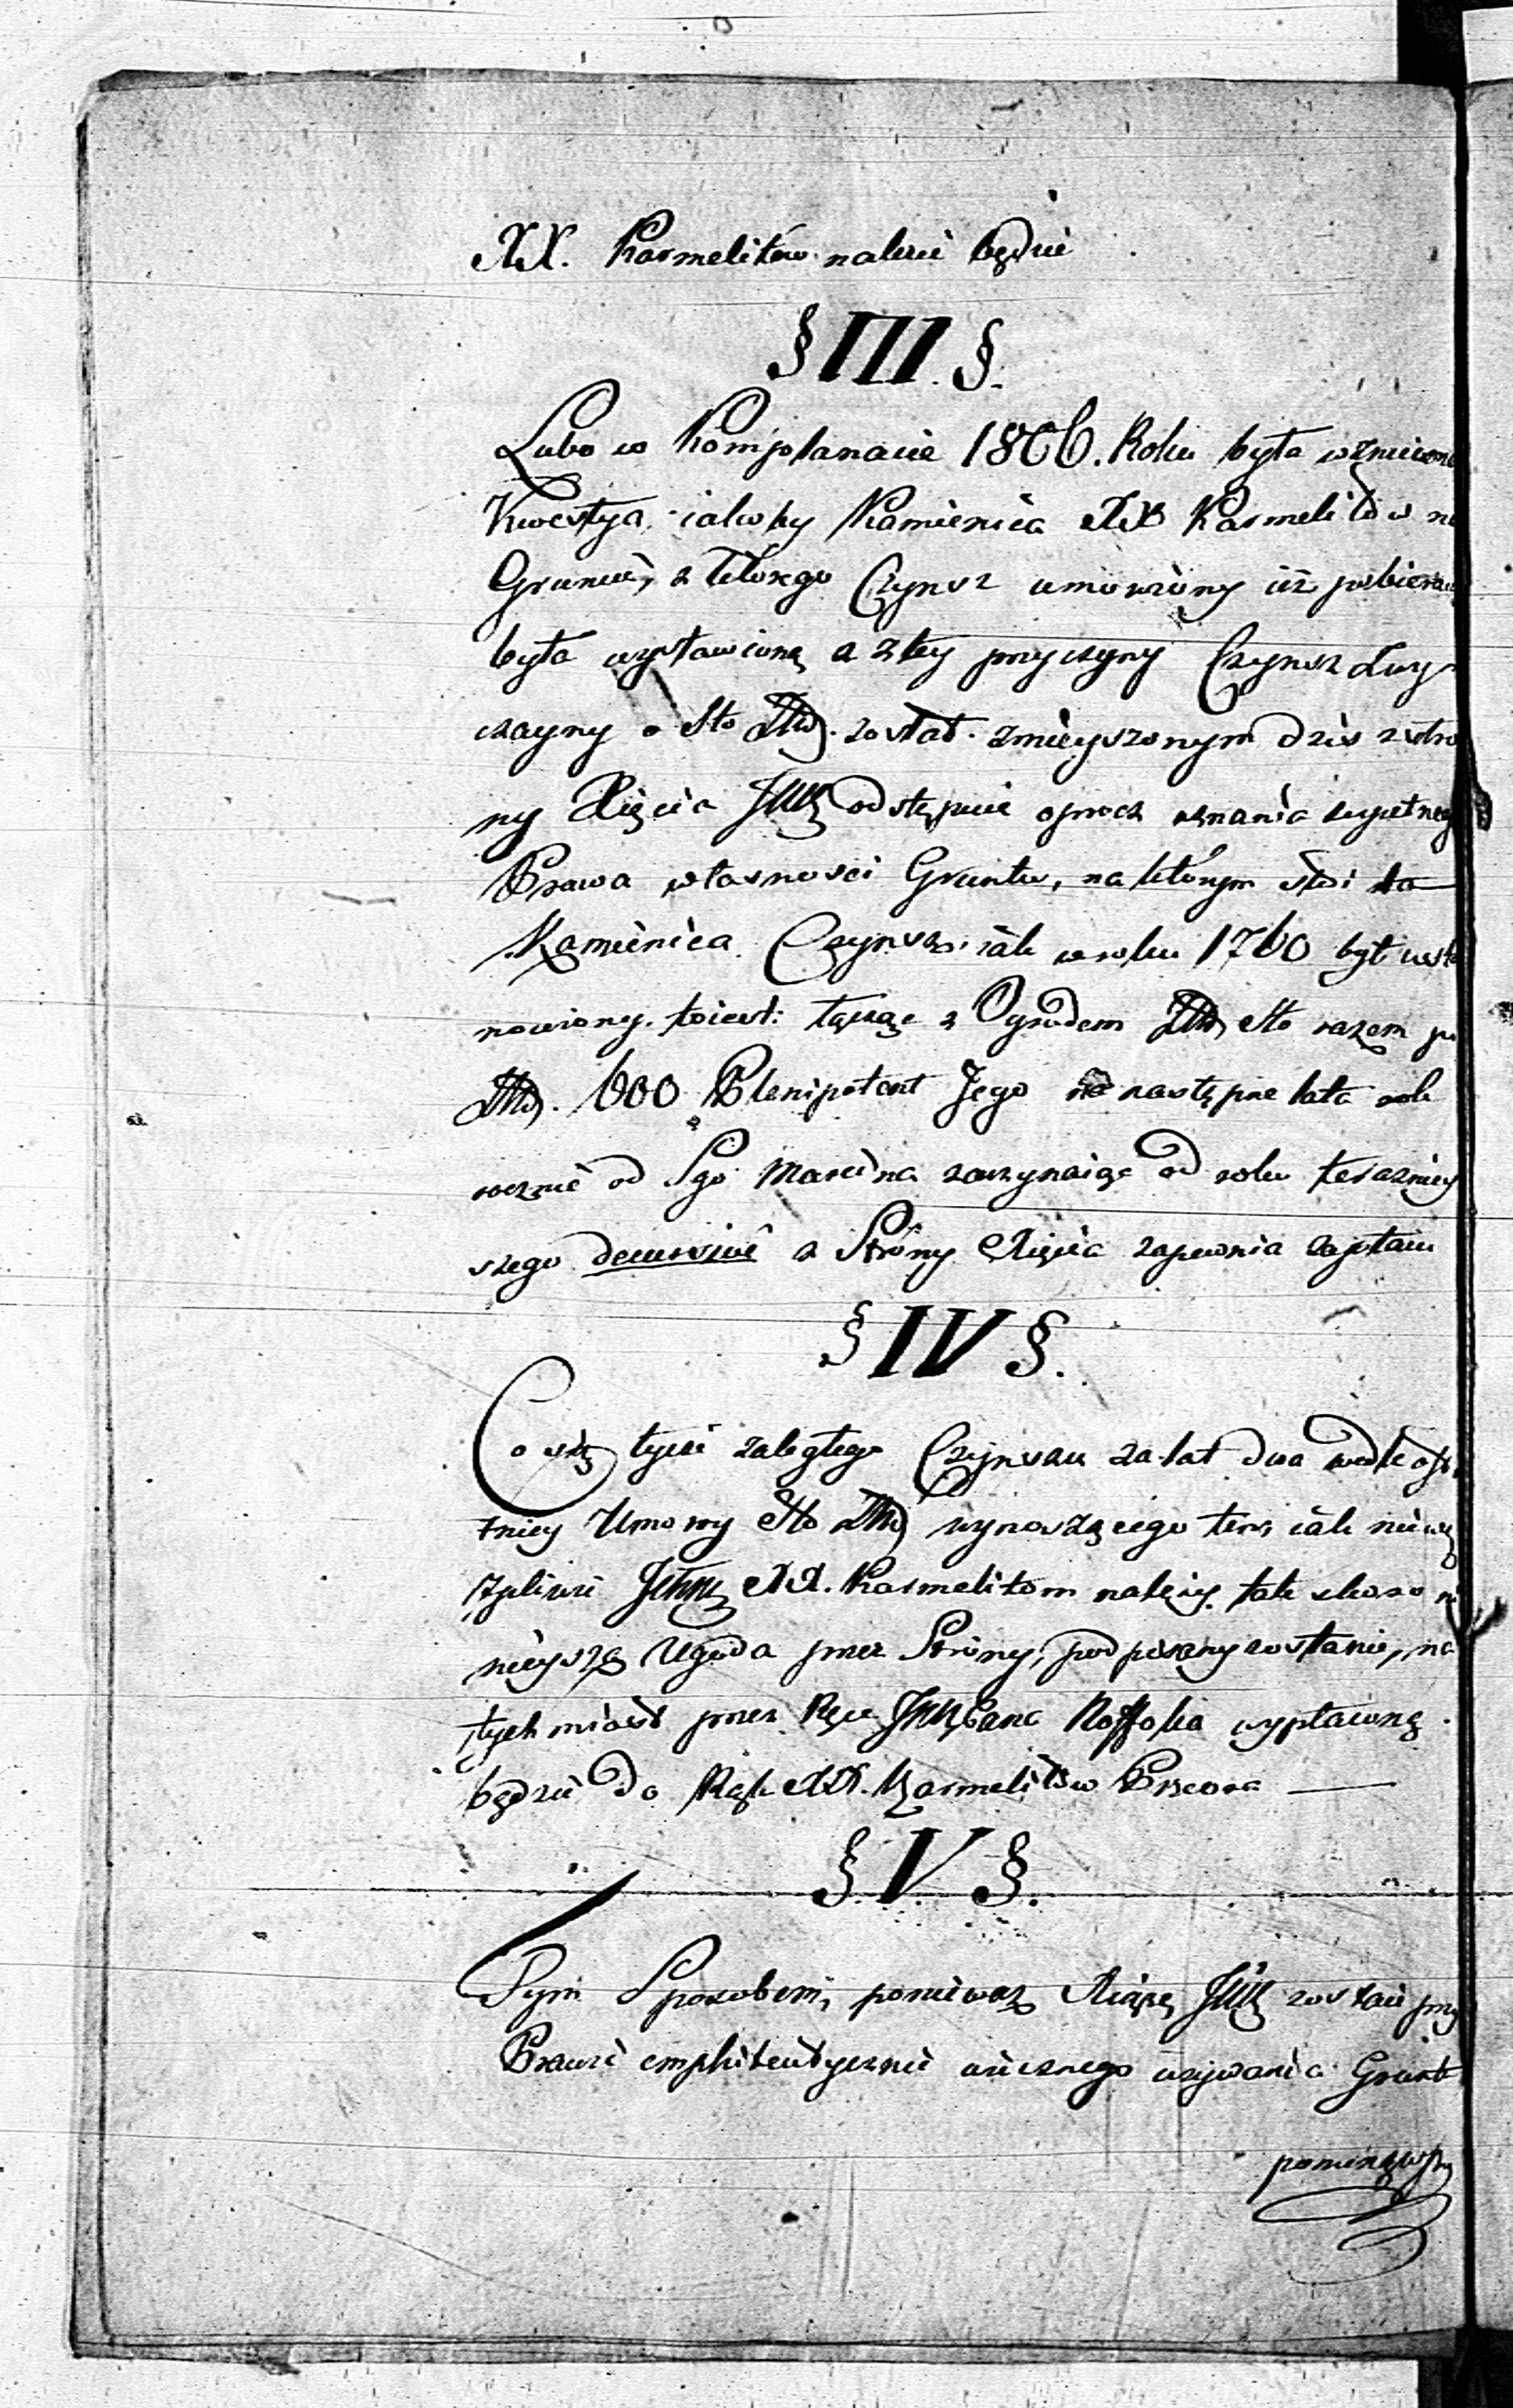 XX. Karmelitów należeć będzie
§ III. §.
Lubo w Komplanacie 1806. Roku była wzniecona
Kwestya, jakoby Kamienica XX Karmelitów na
Gruncie, z którego Czynsz umówiony iuż pobiera
była wystawioną a z tey przyczyny Czynsz
czayny o Sto zostać zmnieyszonym dziś z stro
ny Xięcia odstępuie oprócz uznania zupełnego
Prawa własności Gruntu, na którym stoi ta
Kamienica Czynsz, iak w roku 1760 był usta
nowiony. toiest: łącząc z Ogrodem Sto razem po
600 Plenipotent Jego na następne lata rok
rocznie od Sgo Marcina zaczynaiąc od roku teraźniey
szego decursive z Strony Xięcia zapewnia
§ IV §.
Co się tycze zaległego Czynszu za lat dwa wedle
tniey Umowy Sto wynoszącego ten, iak
XX. Karmelitom należy, tak skoro ni
nieysza Ugoda przez Strony, podpisany zostanie, na
tychmiast przez Ręce Pana wypłaconą
będzie do Rąk XX. Karmelitów Przeora —
§. V. §.
Tym Sposobem, ponieważ Xiąże zostaie przy
Prawie emphiteutycznie wiecznego używania Grunt
pominąwszy